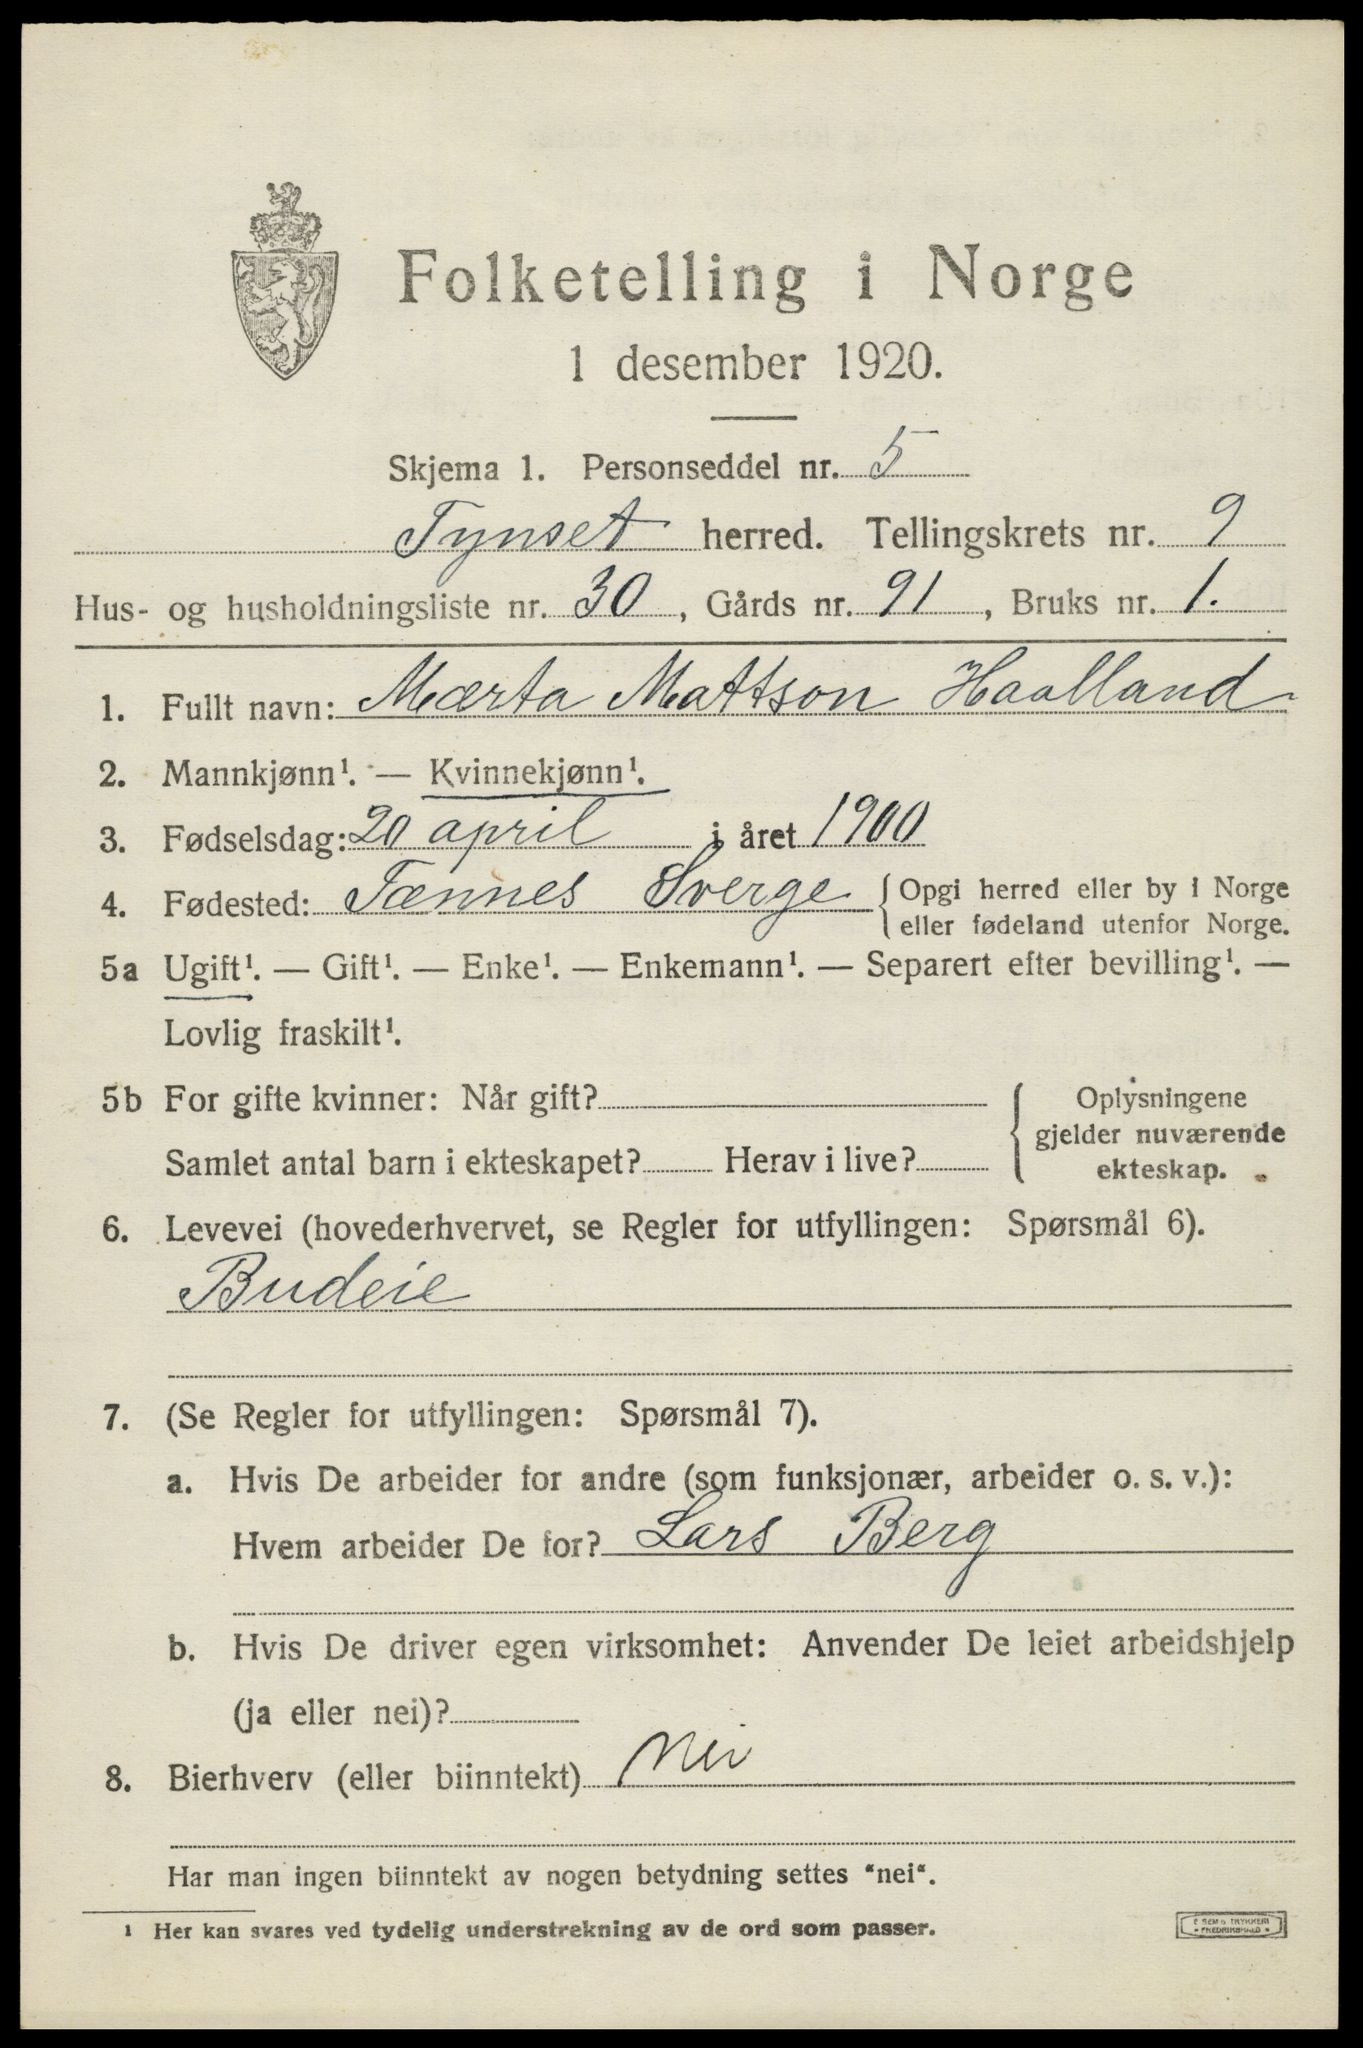 Folketelling i Norge
1 desember 1920.
Skjema 1. Personseddel nr. 5
Tynset herred. Tellingskrets nr. 9
Hus- og husholdningsliste nr. 30, Gårds nr. 91, Bruks nr. 1.
1. Fullt navn: Mærta Mattson Haalland
2. Mannkjønn¹. — Kvinnekjønn¹.
3. Fødselsdag: 20 april i året 1900
4. Fødested: Tænnes Sverge { Opgi herred eller by i Norge
eller fødeland utenfor Norge.
5a Ugift¹. — Gift¹. — Enke¹. — Enkemann¹. — Separert efter bevilling¹. —
Lovlig fraskilt¹.
5b For gifte kvinner: Når gift?
Samlet antal barn i ekteskapet? Herav i live?
{ Oplysningene
gjelder nuværende
ekteskap.
6. Levevei (hovederhvervet, se Regler for utfyllingen: Spørsmål 6).
Budeie
7. (Se Regler for utfyllingen: Spørsmål 7).
a. Hvis De arbeider for andre (som funksjonær, arbeider o. s. v.):
Hvem arbeider De for? Lars Berg
b. Hvis De driver egen virksomhet: Anvender De leiet arbeidshjelp
(ja eller nei)?
8. Bierhverv (eller biinntekt) Nei
Har man ingen biinntekt av nogen betydning settes “nei“.
¹ Her kan svares ved tydelig understrekning av de ord som passer.